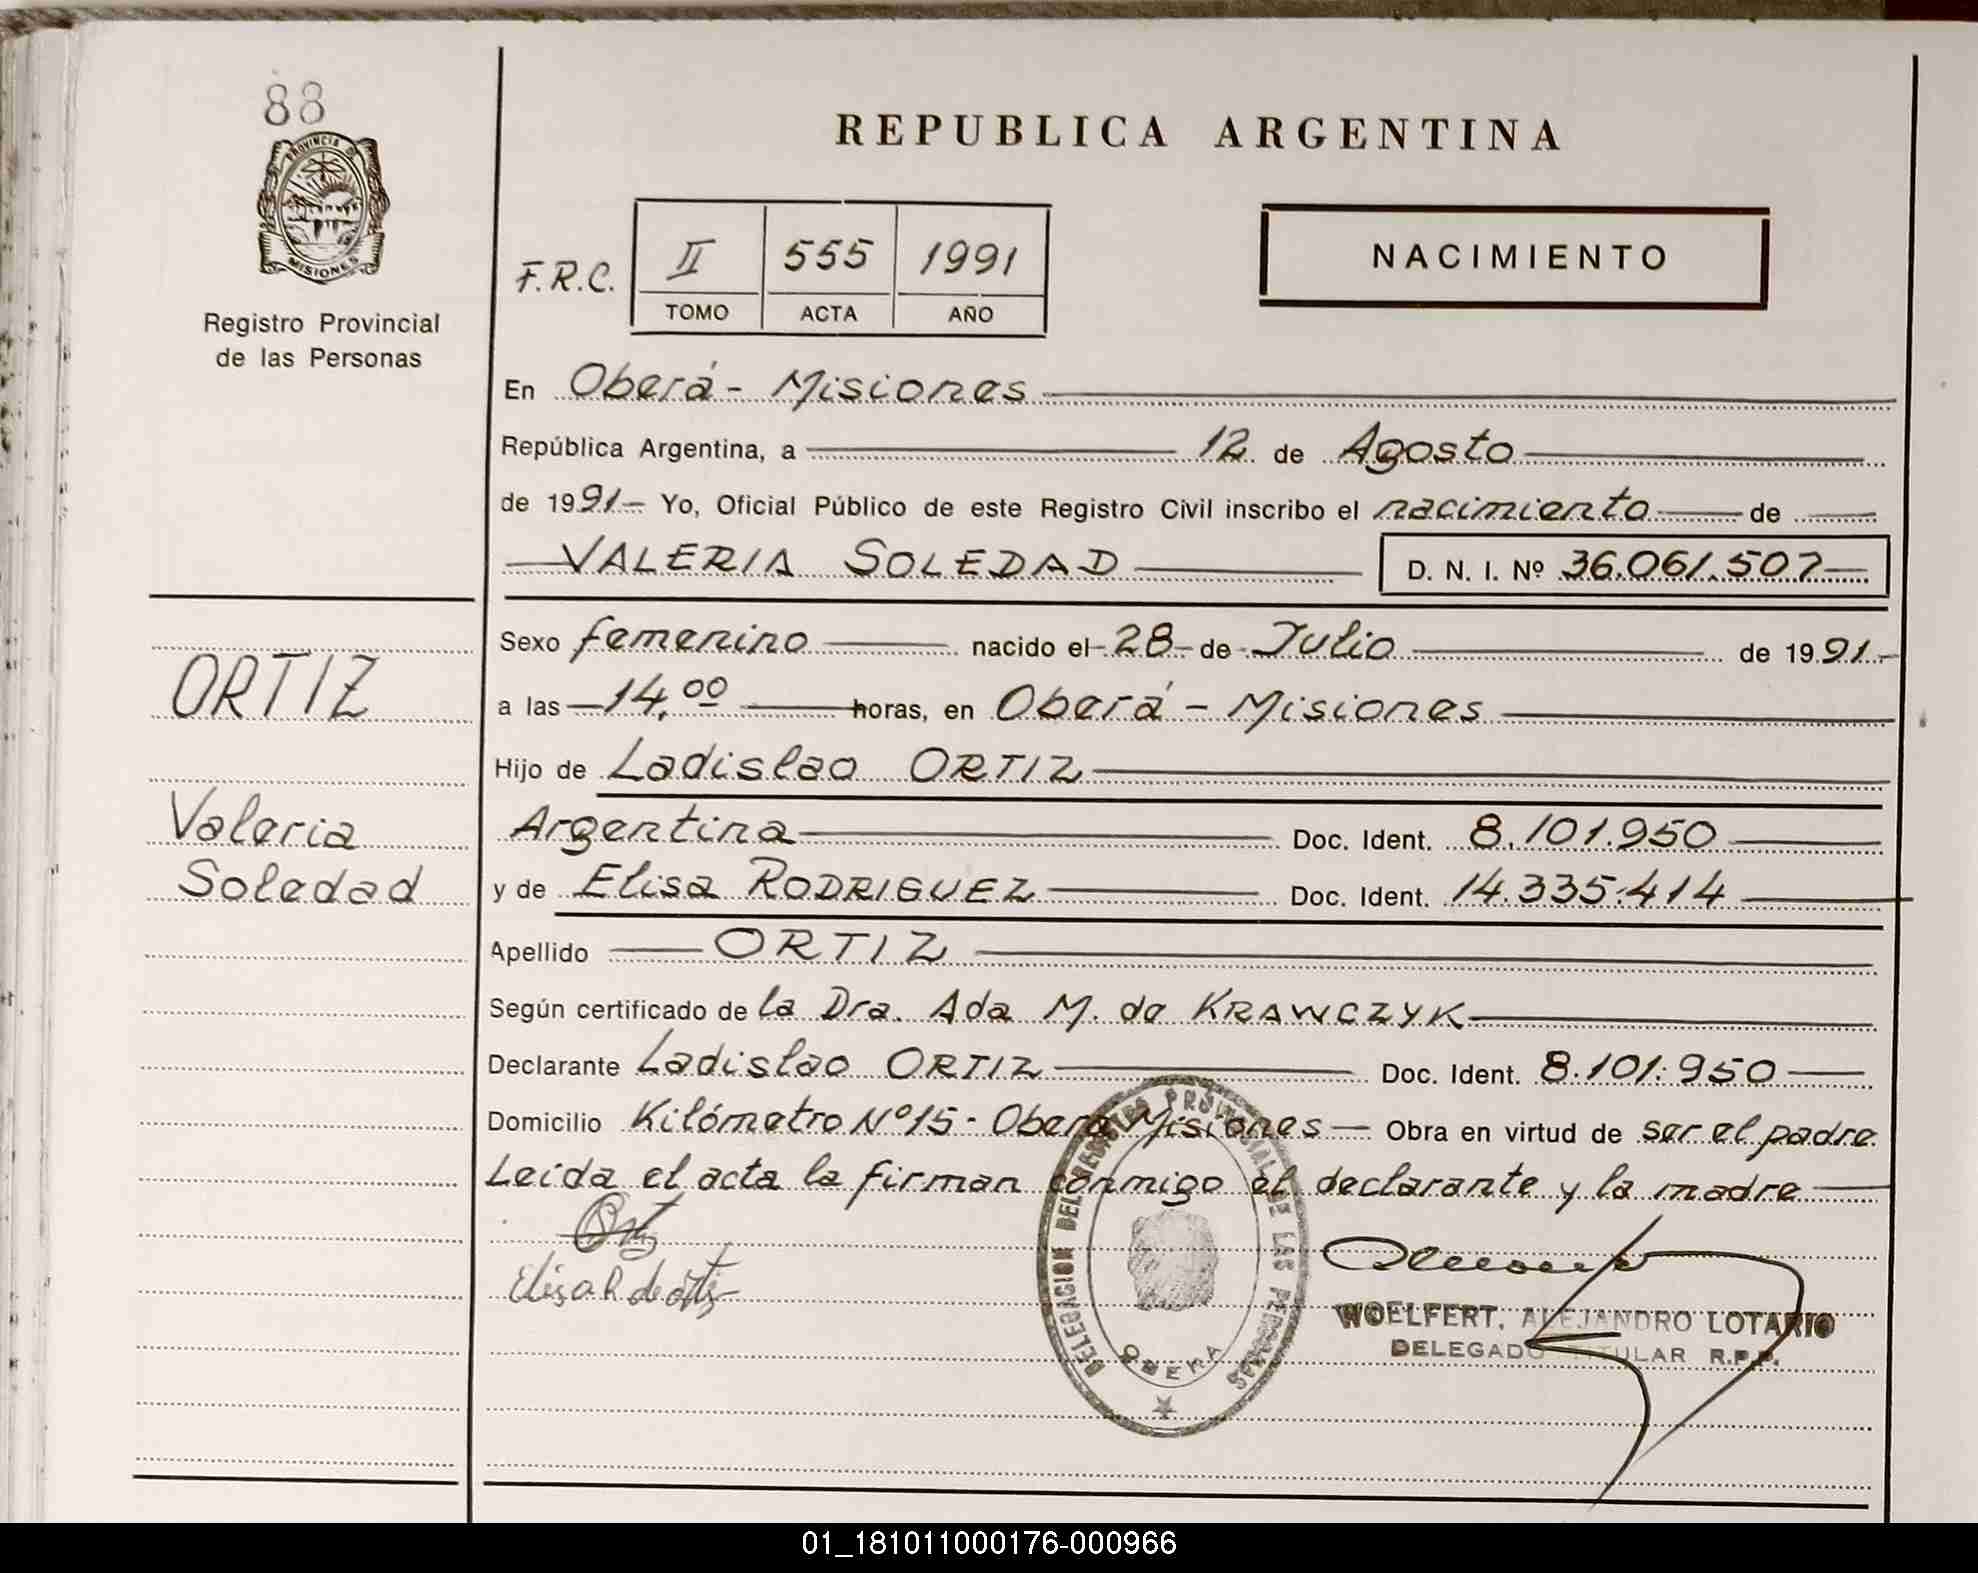 88
PROVINCIA DE
MISIONES
Registro Provincial
de las Personas
REPUBLICA ARGENTINA
F.R.C.
II 555 1991
TOMO ACTA AÑO
NACIMIENTO
En Oberá - Misiones
República Argentina, a 12 de Agosto
de 1991 - Yo, Oficial Público de este Registro Civil inscribo el nacimiento de
VALERIA SOLEDAD D. N. I. Nº 36.061.507
Sexo femenino nacido el 28 de Julio de 1991.-
a las 14,00 horas, en Oberá - Misiones
Hijo de Ladislao ORTIZ
Argentina Doc. Ident. 8.101.950
y de Elisa RODRIGUEZ Doc. Ident. 14.335.414
Apellido ORTIZ
Según certificado de la Dra. Ada M. de KRAWCZYK
Declarante Ladislao ORTIZ Doc. Ident. 8.101.950
Domicilio Kilómetro Nº 15 - Oberá Misiones Obra en virtud de ser el padre
Leida el acta la firman conmigo el declarante y la madre
Elisa R de Ortiz
ORTIZ
Valeria
Soledad
DELEGACION DEL REGISTRO PROVINCIAL DE LAS PERSONAS
OBERA
WOELFERT, ALEJANDRO LOTARIO
DELEGADO TITULAR R.P.P.
01_181011000176-000966